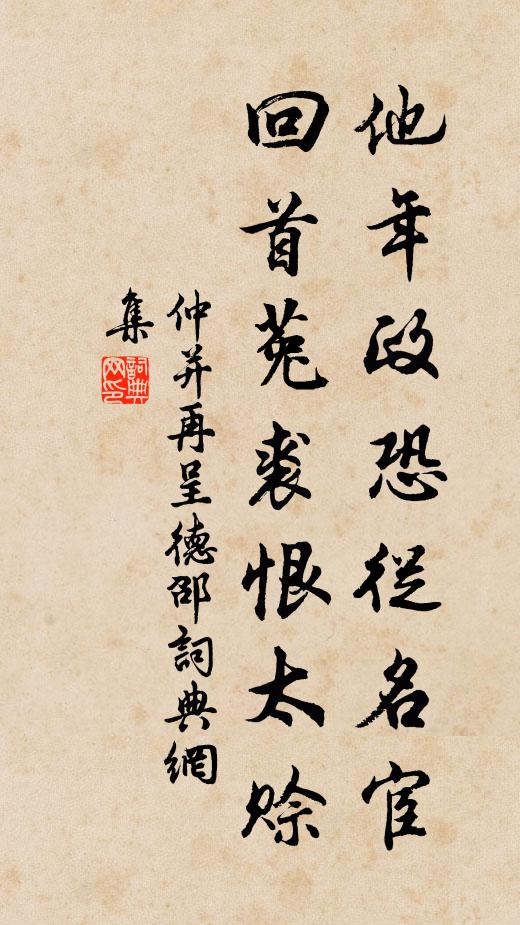 他年政恐從名宦
回首菟裘恨太賒
仲并再呈德邵詞典網
集
詞典网印